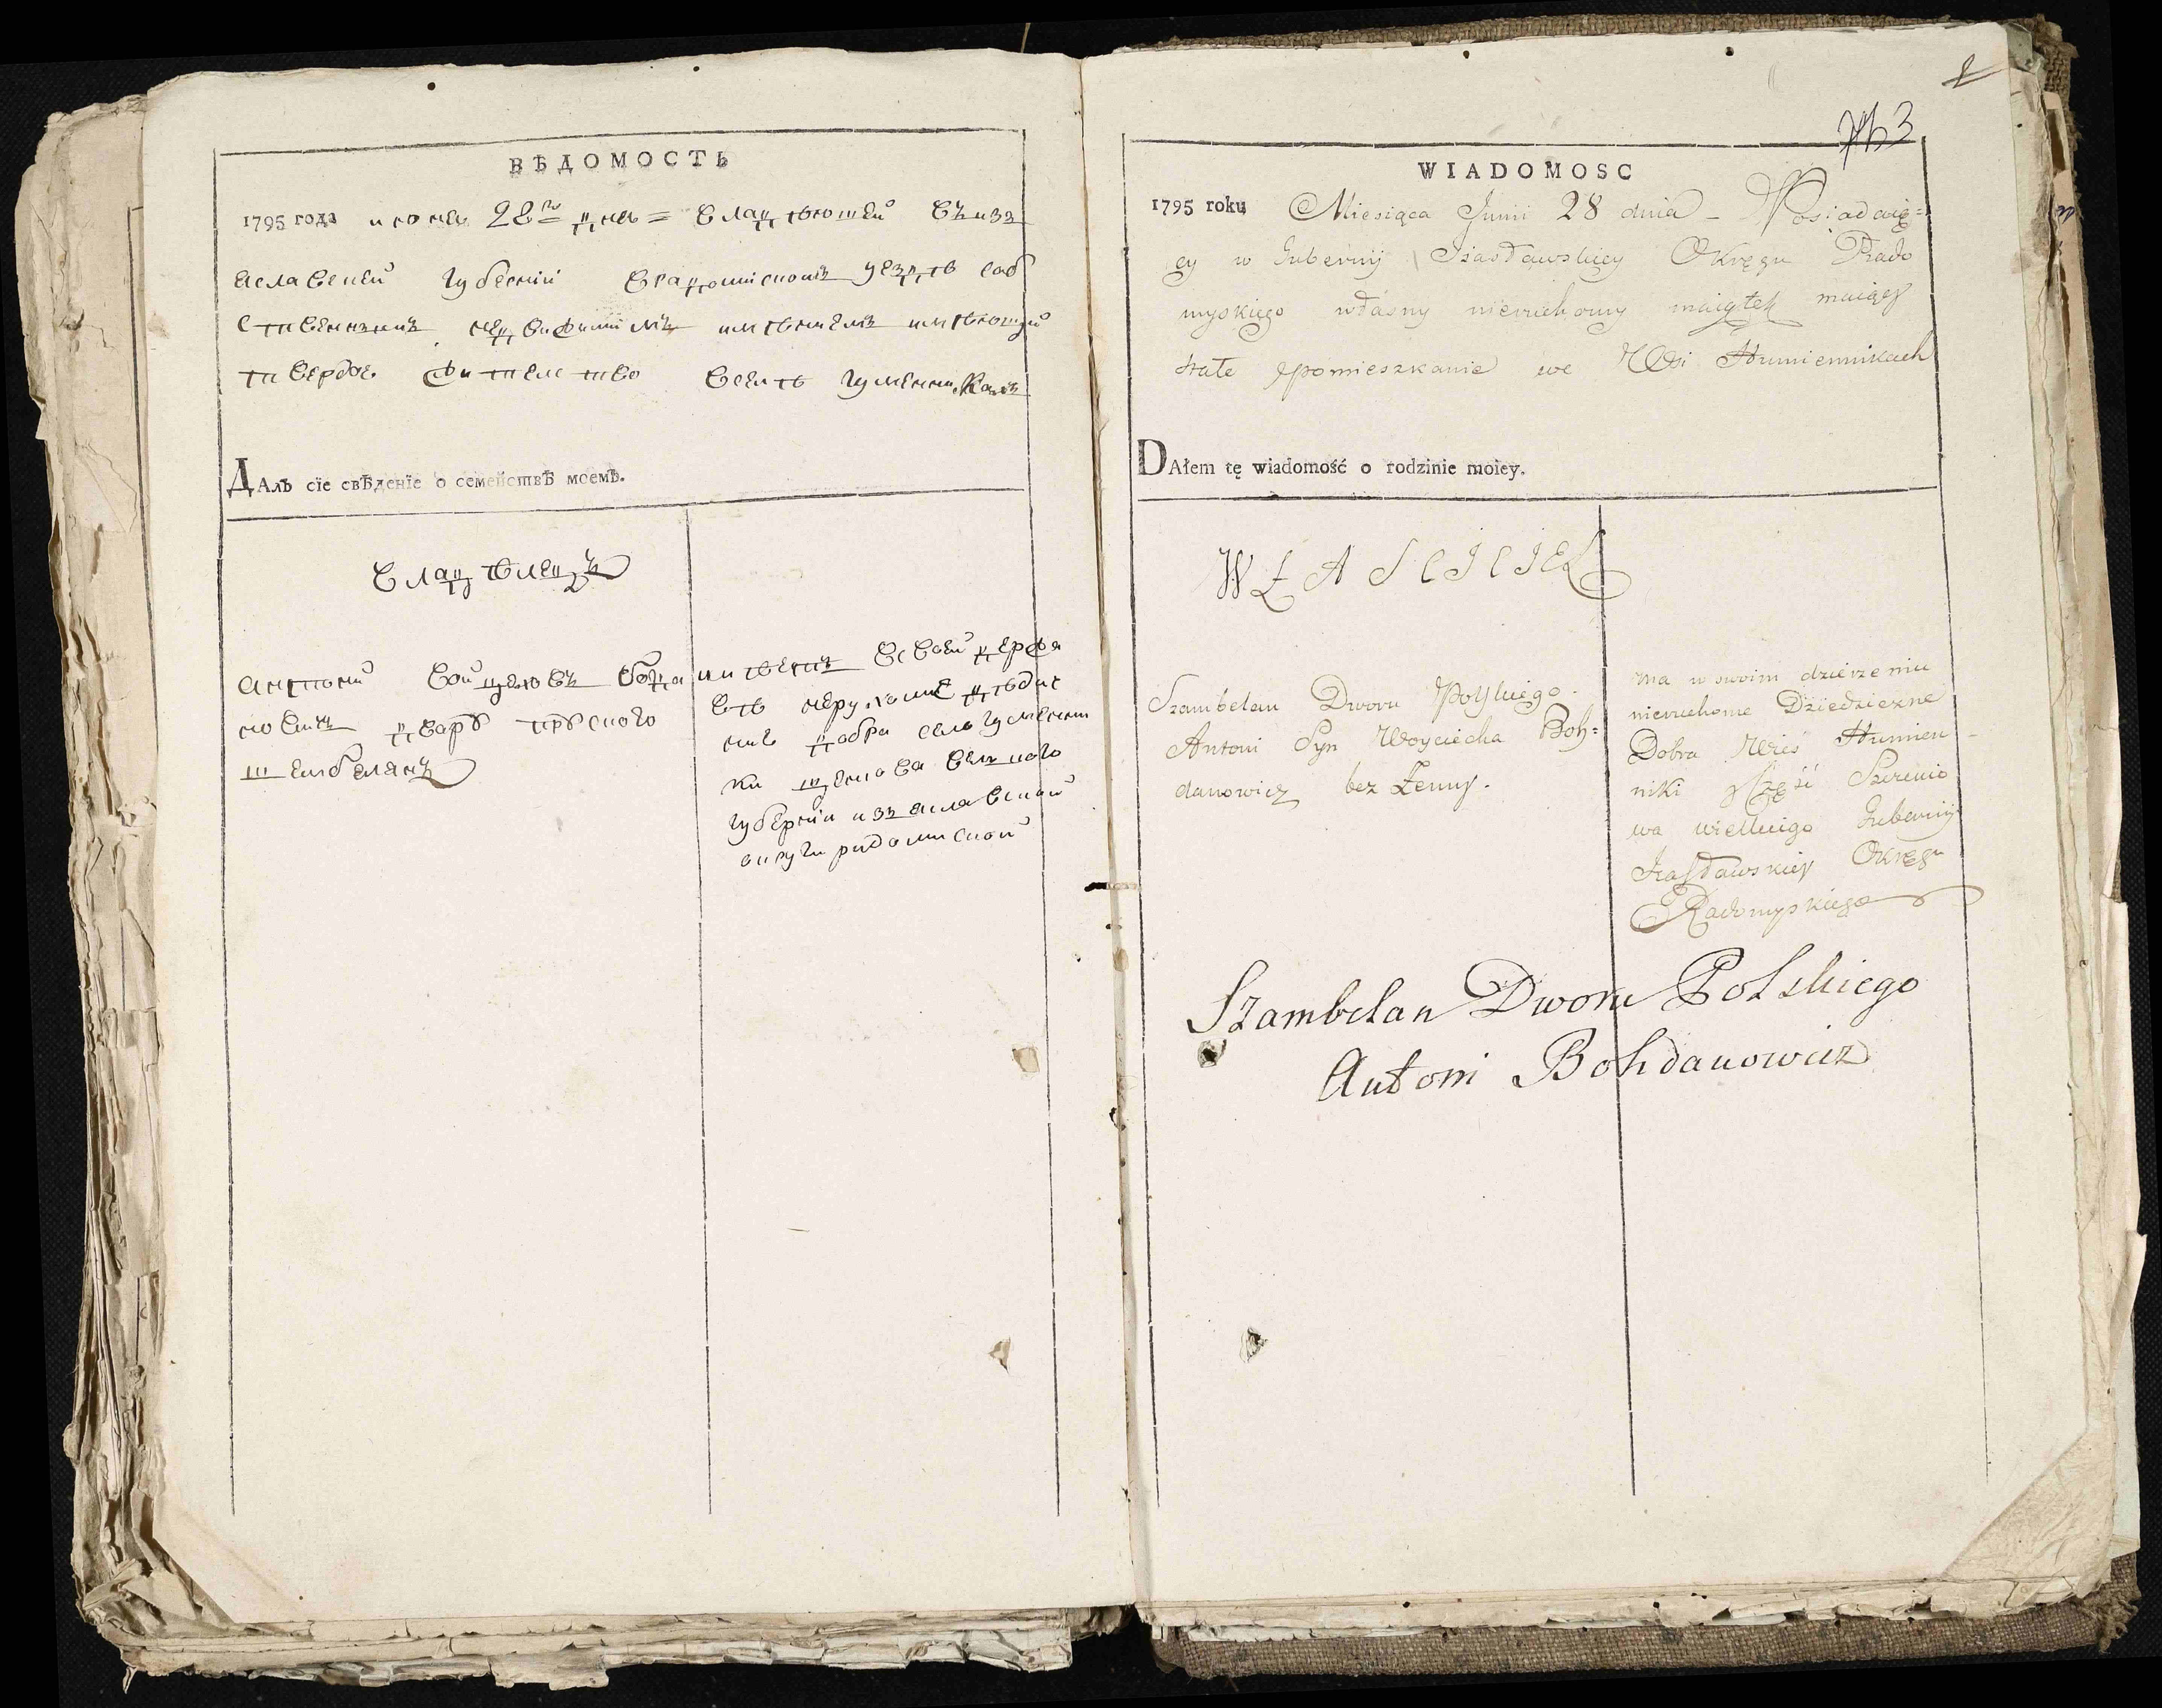 ВѢДОМОСТЬ
1795 года июня 28го дня = владѣющей въ изъ
яславской губернїи врадомиском уездѣ соб
ственным недвижимимъ имѣниемъ имѣющий
твердое жителство вселѣ гуменникахъ
ДАлЪ сїе свѣденїе о семействѣ моемЪ.
владѣлецъ
антоний войцеховъ богда
новичъ двора полского
шамбелянъ
имѣетъ всвоей держа
вѣ нерухоме дѣдич
ние добра село гуменни
ки
губернии изъяславской
округи радомиской
3
WIADOMOSC
1795 roku Miesiąca Junii 28 dnia - Posiadaią=
cy w Gubernij Izasławskiey Okręgu Rado
myskiego własny nieruchomy maiątek maiący
stałe pomieszkanie we Wsi Humiennikach
DAłem tę wiadomość o rodzinie moiey.
WŁASCICIEL
Szambelan Dworu Polskiego
Antoni Syn Woyciecha Boh=
danowicz bez Żenny.
ma w swoim dzierzeniu
nieruchome Dziedziczne
Dobra Wieś Humien-
niki y Część Szeniio
wa wielkiego Gubernij
Izasławskiey Okręgu
Radomyskiego
Szambelan Dworu Polskiego
Antoni Bohdanowicz